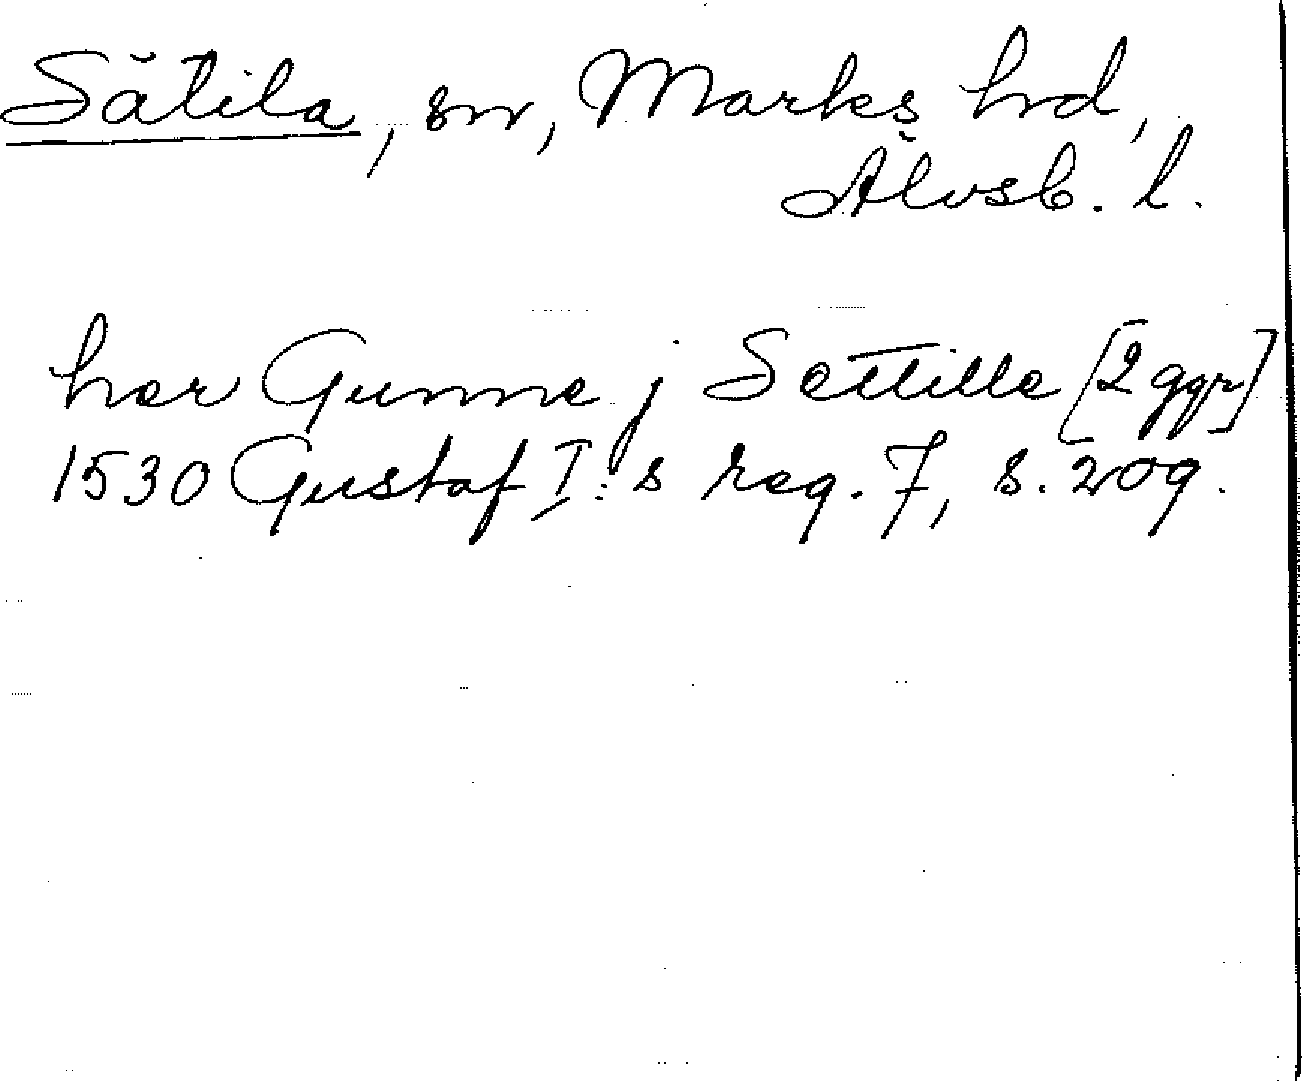 Sätila, sn, Marks hrd,
Älvsb. l.
her Gunne j Settille [2 ggr]
1530 Gustaf I:s reg. 7, s. 209.